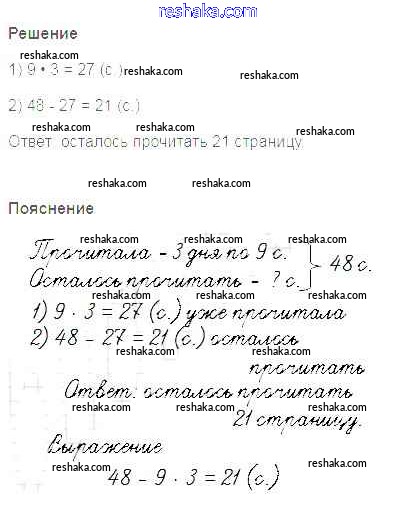 reshaka.com
Решение
reshaka.com
1) 9 • 3 = 27 (с.) reshaka.com reshaka.com
2) 48 - 27 = 21 (с.)
reshaka.com reshaka.com reshaka.com
Ответ: осталось прочитать 21 страницу.
reshaka.com reshaka.com
Пояснение
reshaka.com reshaka.com reshaka.com
Прочитала - 3 дня по 9 с.
Осталось прочитать - ? с. } 48 с.
reshaka.com reshaka.com reshaka.com
1) 9 · 3 = 27 (с.) уже прочитала
2) 48 - 27 = 21 (с.) осталось
reshaka.com reshaka.com
прочитать
Ответ: осталось прочитать
reshaka.com reshaka.com reshaka.com
21 страницу.
Выражение
reshaka.com reshaka.com
48 - 9 · 3 = 21 (с.)